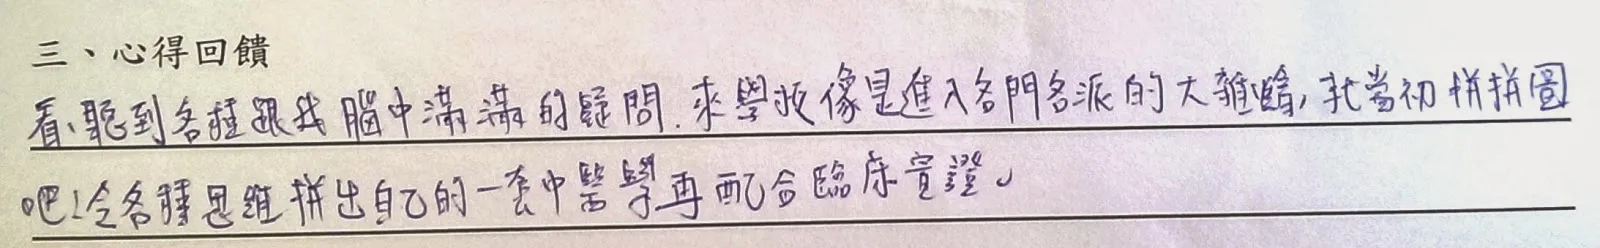 三、心得回饋
看、聽到各種跟我腦中滿滿的疑問.來學校像是進入各門各派的大雜燴,就當初拼拼圖
吧!令各種思維拼出自己的一套中醫學再配合臨床實證。